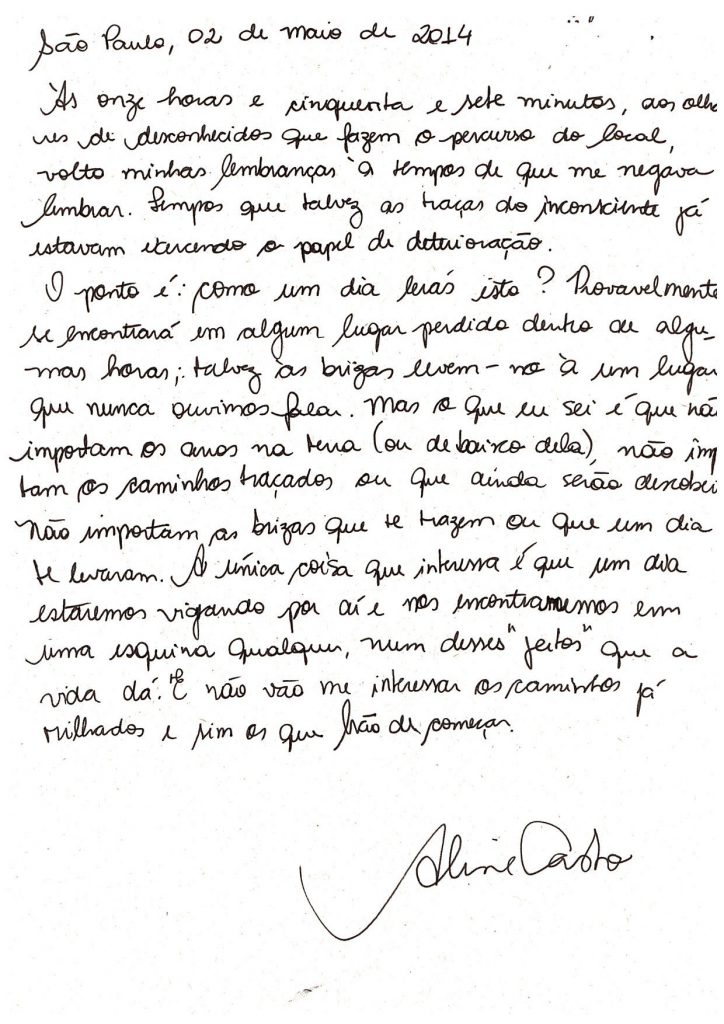 São Paulo, 02 de maio de 2014
Às onze horas e cinquenta e sete minutos, aos olha
res de desconhecidos que fazem o percurso do local,
volto minhas lembranças à tempos de que me negava
lembrar. Tempos que talvez as traças do inconsciente já
estavam exercendo o papel de deterioração.
O ponto é: como um dia lerás isto? Provavelmente
se encontrará em algum lugar perdido dentro de algu-
mas horas; talvez as brizas levem-no à um lugar
que nunca ouvimos falar. Mas o que eu sei é que nã
importam os anos na terra (ou debaixo dela), não imp
tam os caminhos traçados ou que ainda serão descober
Não importam as brizas que te trazem ou que um dia
te levaram. A única coisa que interessa é que um dia
estaremos vigando por aí e nos encontraremos em
uma esquina qualquer, num desses "jeitos" que a
vida dá. E não vão me interessar os caminhos já
trilhados e sim os que hão de começar.
Aline Castro